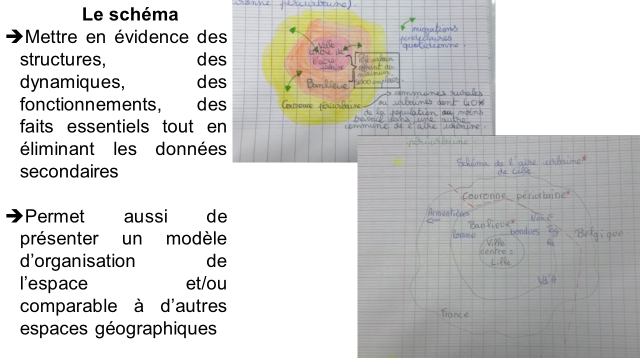 Le schéma
➔Mettre en évidence des
structures, des
dynamiques, des
fonctionnements, des
faits essentiels tout en
éliminant les données
secondaires
➔Permet aussi de
présenter un modèle
d'organisation de
l'espace et/ou
comparable à d'autres
espaces géographiques
migrations
pendulaires
quotidienne.
Ville
Banlieue
Couronne périurbaine
communes rurales
ou urbaines dont 40%
de la population au moins
travail dans une autre
commune de l'aire urbaine.
Schéma de l'aire urbaine*
de Lille
Couronne périurbaine*
Armentières
Banlieue*
Ville
centre :
Lille
Belgique
France